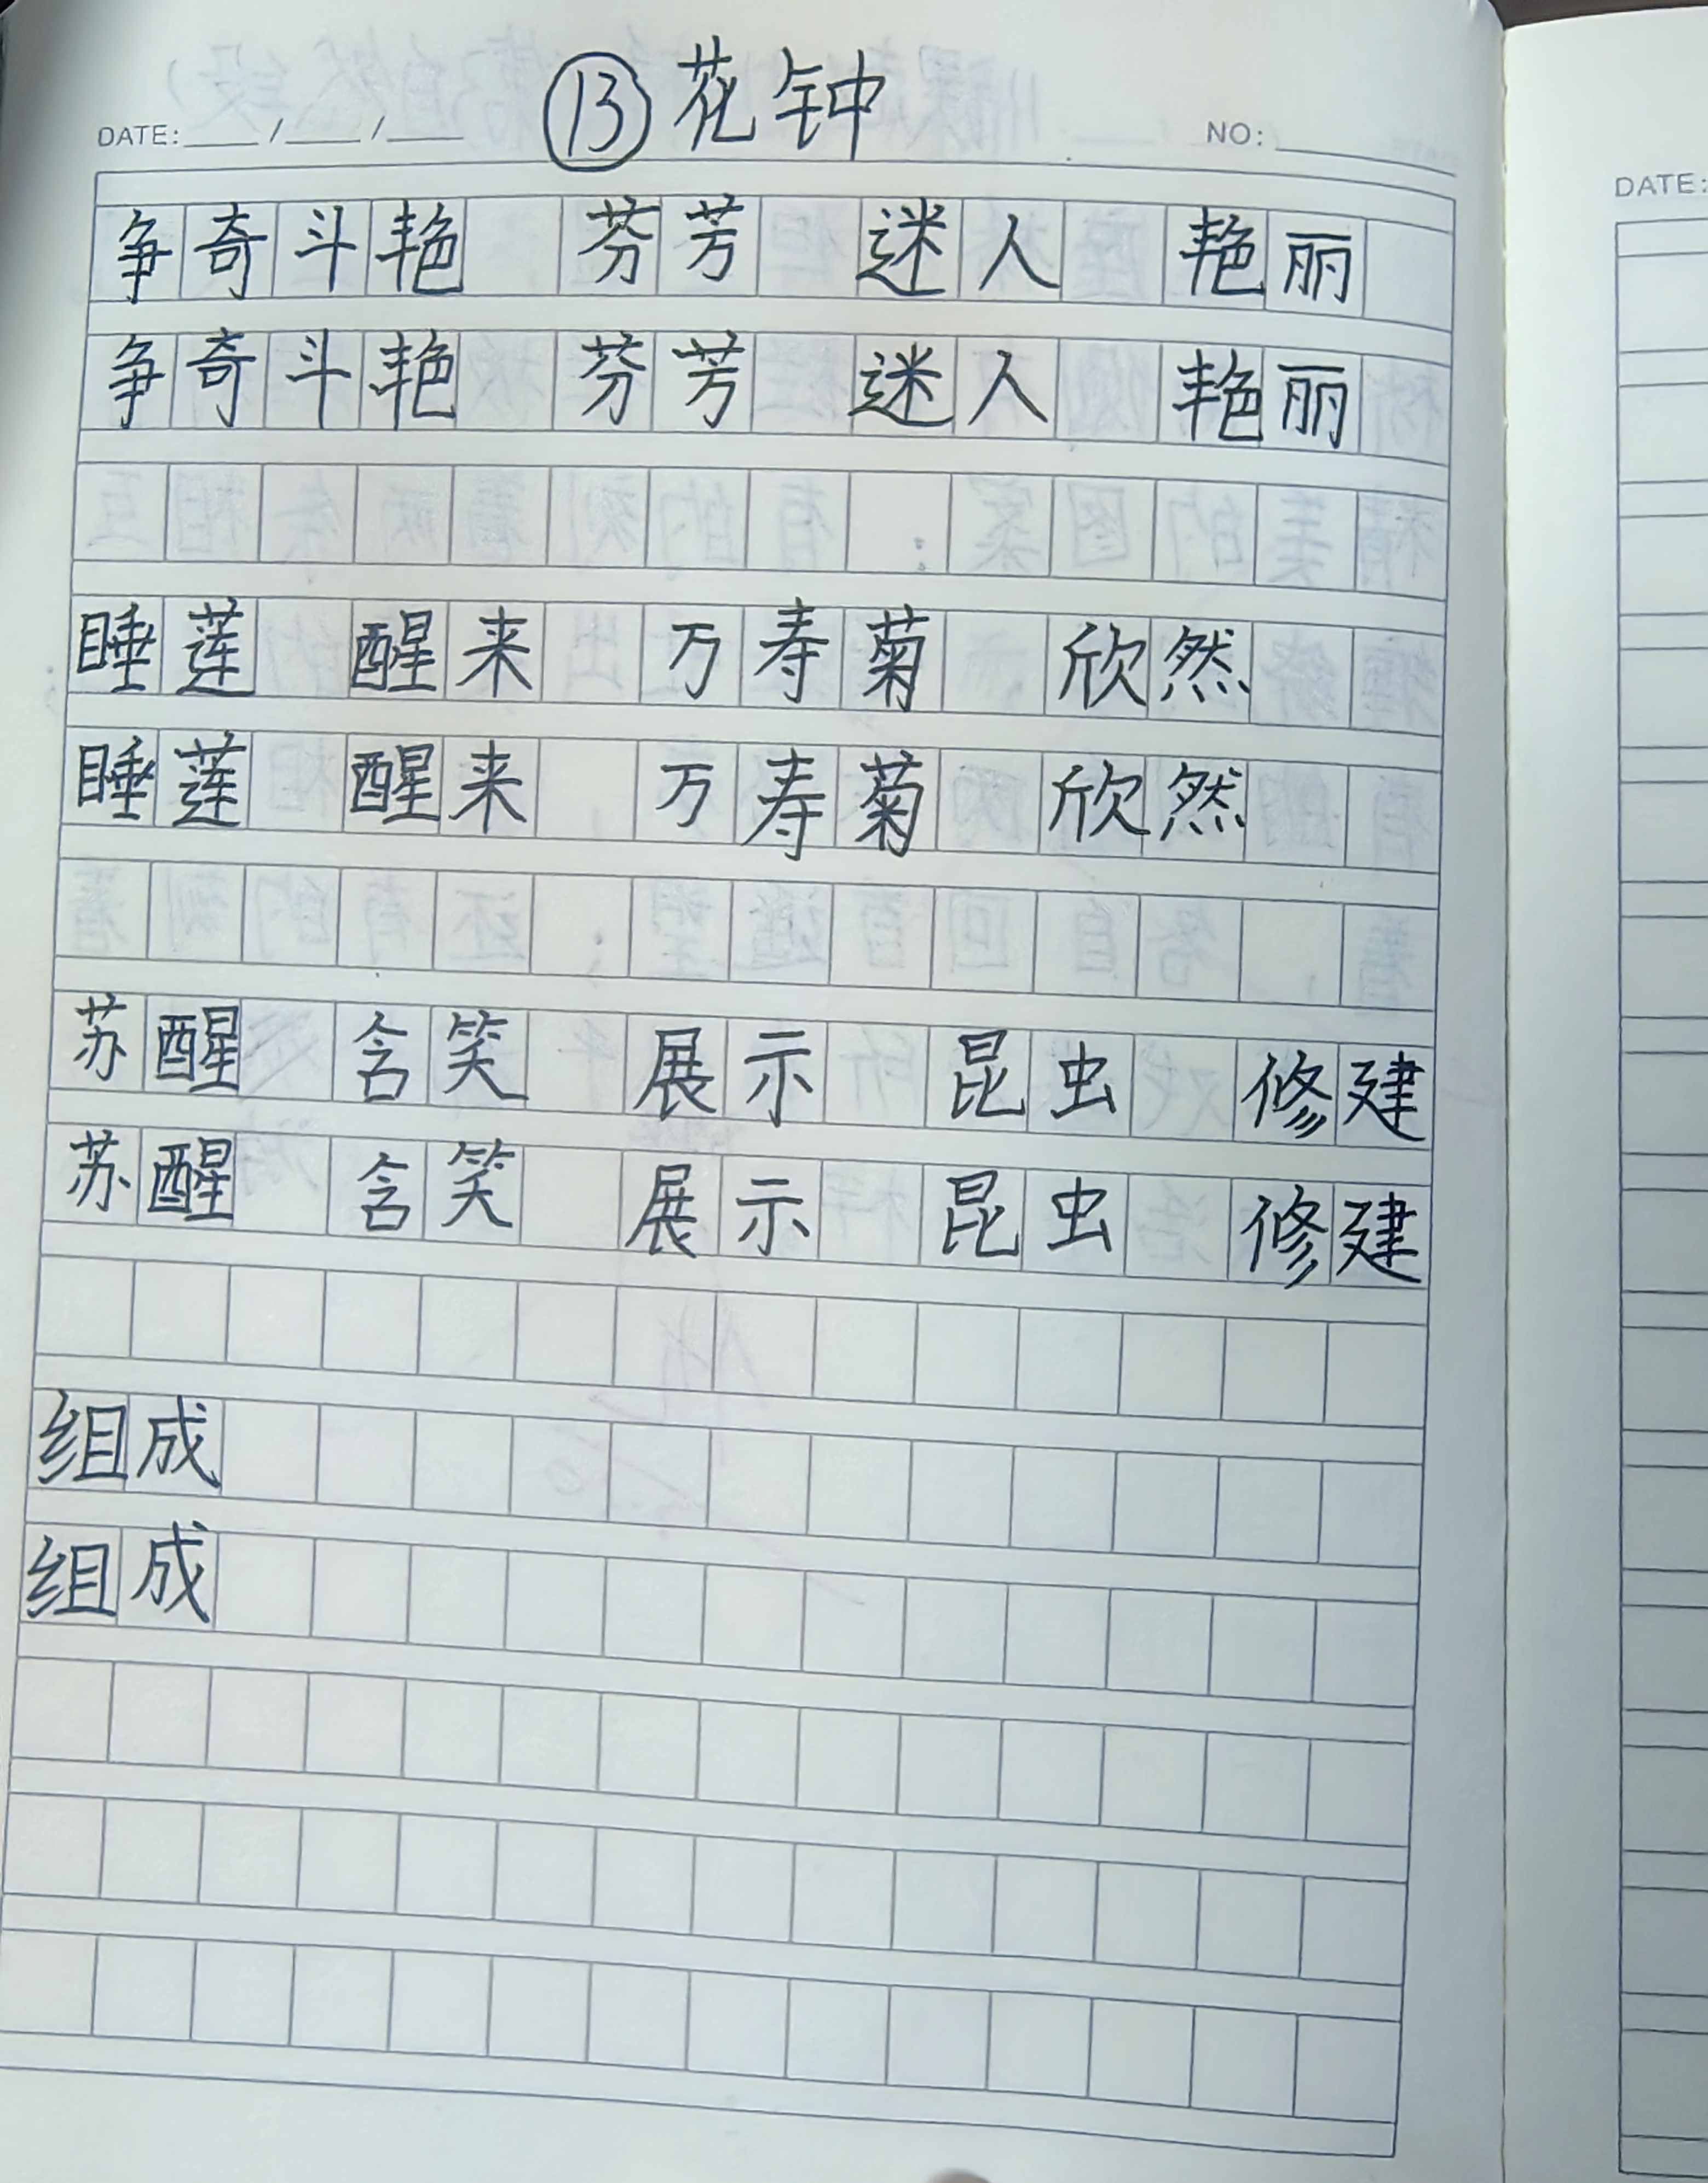 ⑬花钟
DATE: / / NO:
DATE:
争奇斗艳 芬芳 迷人 艳丽
争奇斗艳 芬芳 迷人 艳丽
睡莲 醒来 万寿菊 欣然
睡莲 醒来 万寿菊 欣然
苏醒 含笑 展示 昆虫 修建
苏醒 含笑 展示 昆虫 修建
组成
组成